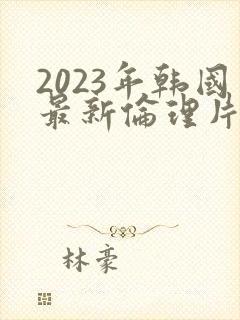 2023年韩国
最新倫理片
林豪